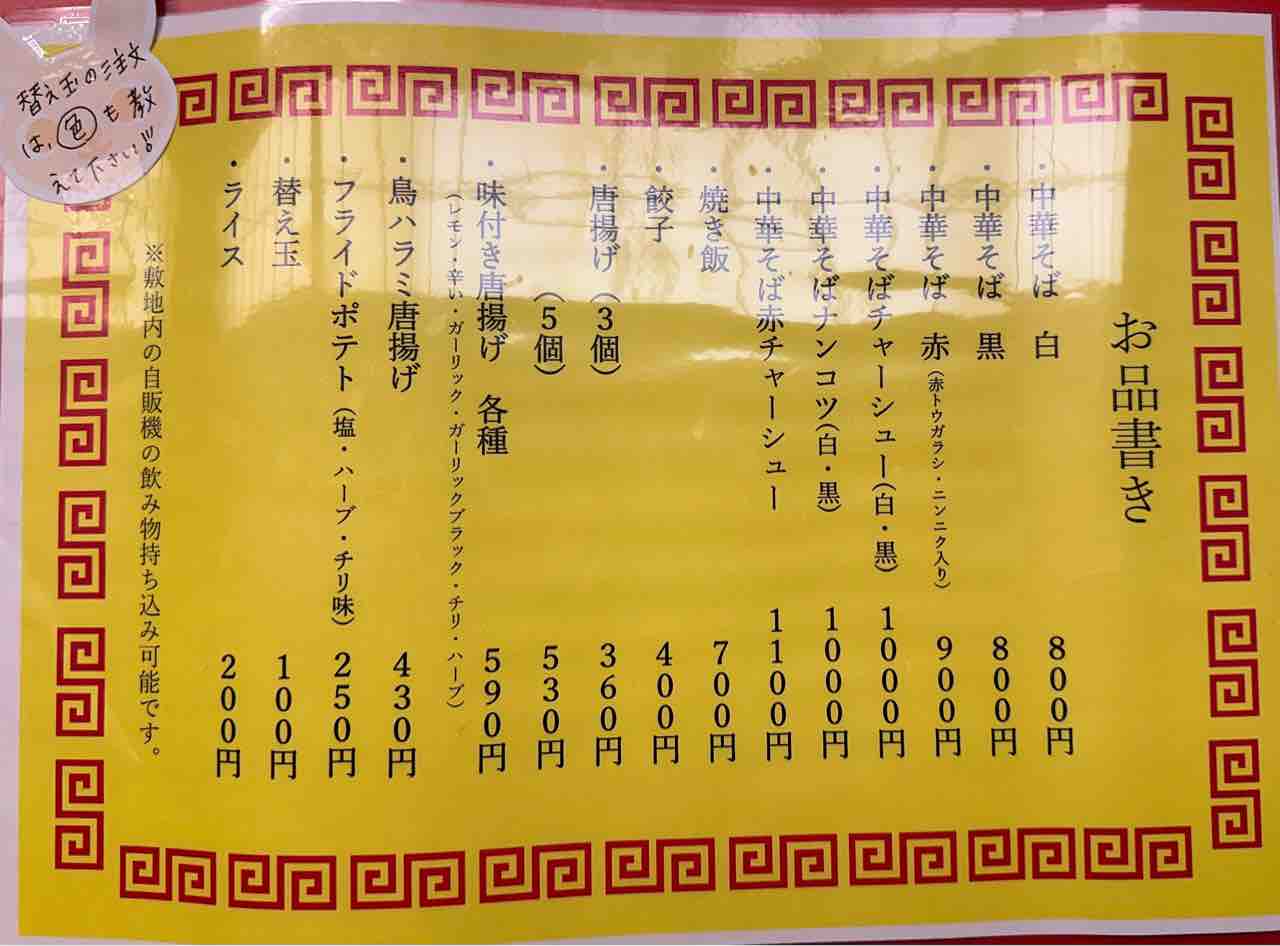 お品書き
・中華そば 白 800円
・中華そば 黒 800円
・中華そば 赤(赤トウガラシ・ニンニク入り) 900円
・中華そばチャーシュー(白・黒) 1000円
・中華そばナンコツ(白・黒) 1000円
・中華そば赤チャーシュー 1100円
・焼き飯 700円
・餃子 400円
・唐揚げ(3個) 360円
(5個) 530円
・味付き唐揚げ 各種 590円
(レモン・辛い・ガーリック・ガーリックブラック・チリ・ハーブ)
・鳥ハラミ唐揚げ 430円
・フライドポテト(塩・ハーブ・チリ味) 250円
・替え玉 100円
・ライス 200円
※敷地内の自販機の飲み物持ち込み可能です。
替え玉の注文
は、色も教
えて下さい!!